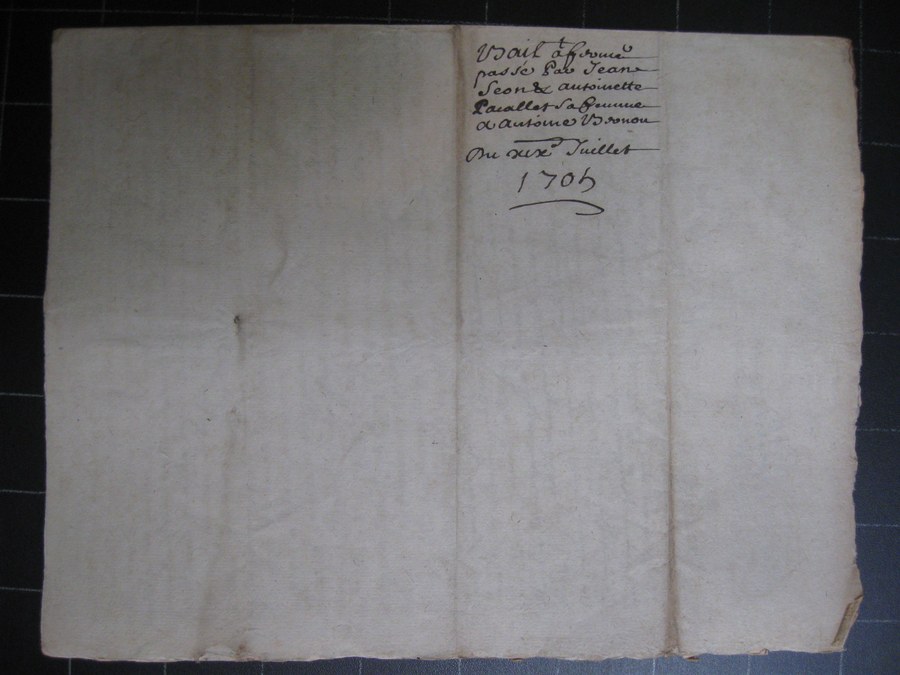 Bail a ferme
passé Par Jean
Seon & antoinette
Paeallet Sa femme
a antoine Bronou
Du xix.e Juillet
1705